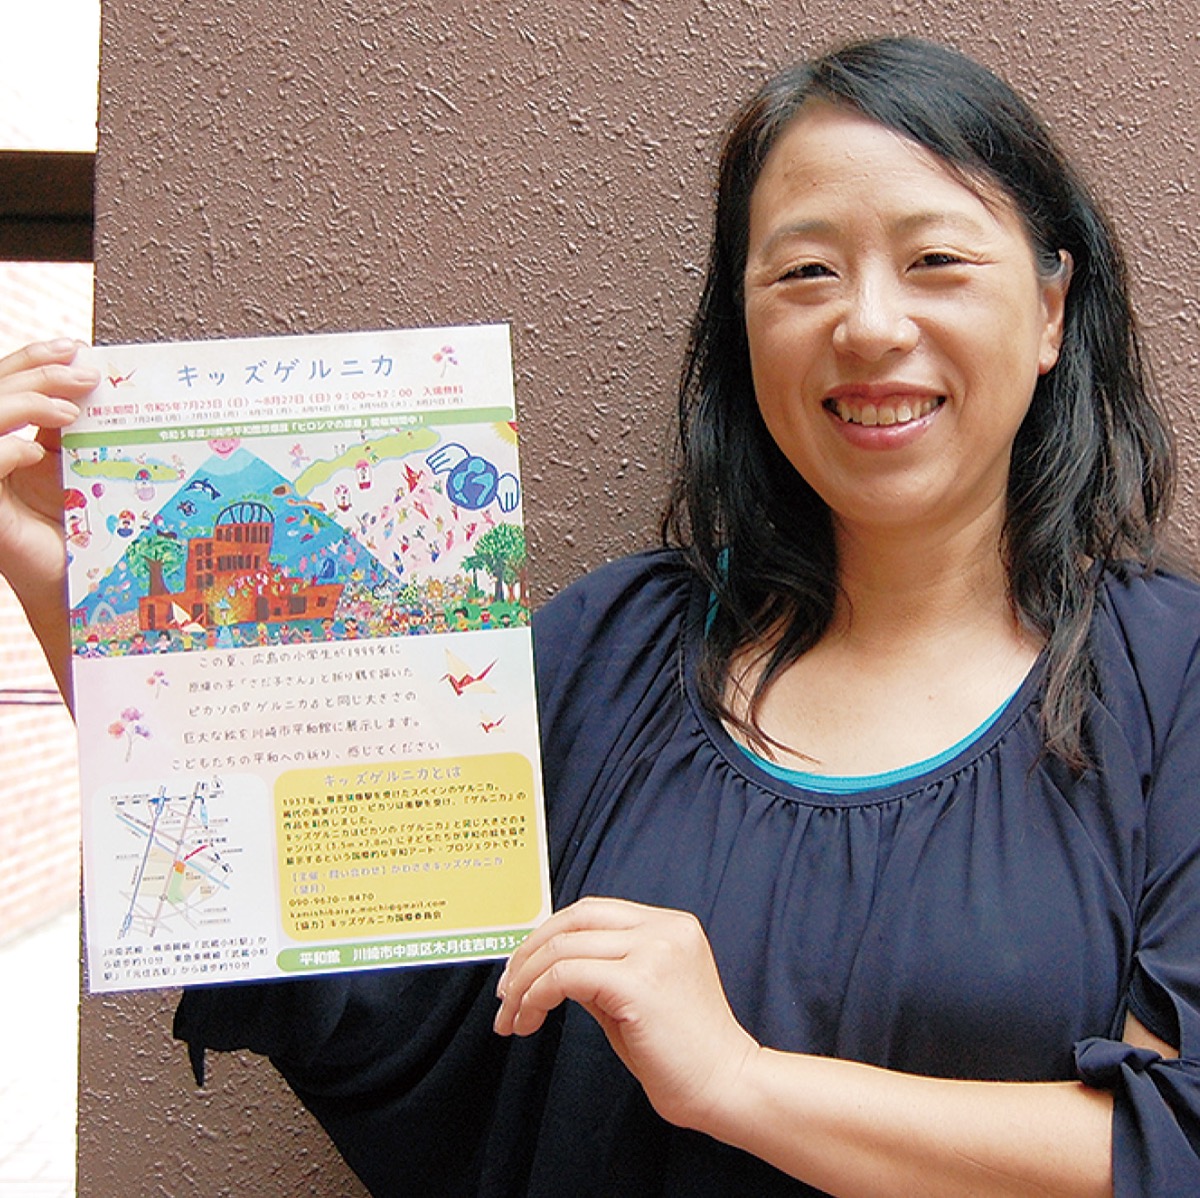 キッズゲルニカ
【展示期間】令和5年7月23日（日）～8月27日（日）9：00～17：00 入場無料
令和5年度川崎市平和館原爆展「ヒロシマの原爆」開催期間中！
この夏、広島の小学生が1999年に
原爆の子「さだ子さん」と折り鶴を描いた
ピカソの『ゲルニカ』と同じ大きさの
巨大な絵を川崎市平和館に展示します。
こどもたちの平和への祈り、感じてください
キッズゲルニカとは
1937年、無差別爆撃を受けたスペインのゲルニカ。
画家パブロ・ピカソは衝撃を受け、『ゲルニカ』の
作品を制作しました。
キッズゲルニカはピカソの『ゲルニカ』と同じ大きさのキ
ャンバス（3.5m×7.8m）に子どもたちが平和の絵を描き
展示するという国際的な平和アート・プロジェクトです。
【主催・問い合わせ】かわさきキッズゲルニカ
（望月）
090-9670-8470
kamishibaiya.mochi@gmail.com
【協力】キッズゲルニカ国際委員会
JR南武線・横須賀線「武蔵小杉駅」か
ら徒歩約10分 東急東横線「武蔵小杉
駅」「元住吉駅」から徒歩約10分
平和館 川崎市中原区木月住吉町33-